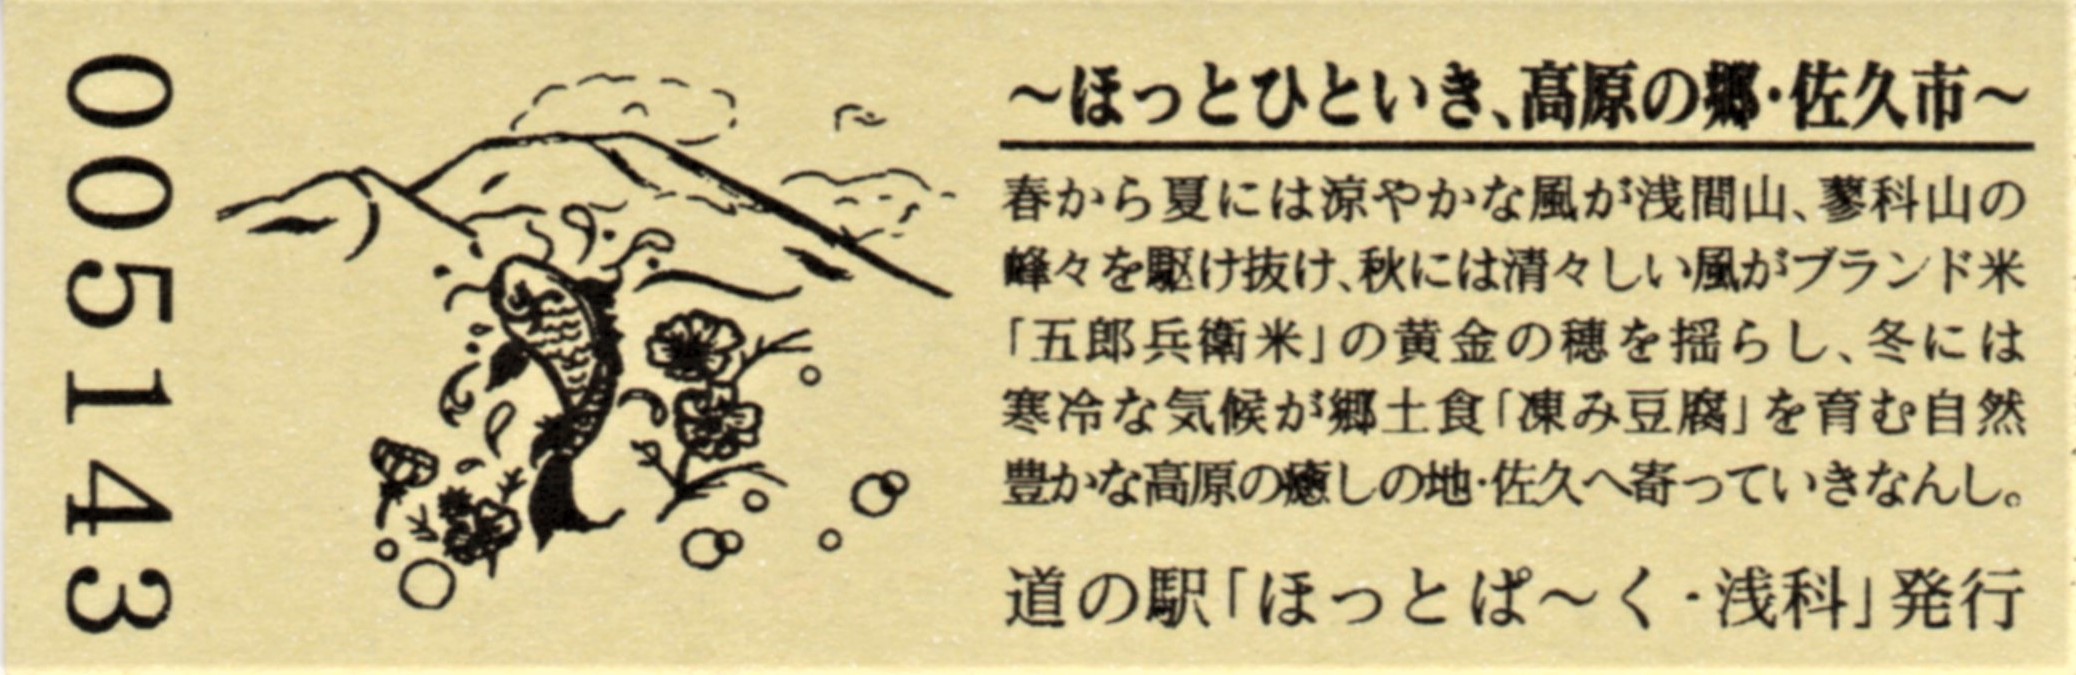 005143
～ほっとひといき、高原の郷・佐久市～
春から夏には涼やかな風が浅間山、蓼科山の
峰々を駆け抜け、秋には清々しい風がブランド米
「五郎兵衛米」の黄金の穂を揺らし、冬には
寒冷な気候が郷土食「凍み豆腐」を育む自然
豊かな高原の癒しの地・佐久へ寄っていきなんし。
道の駅「ほっとぱ～く・浅科」発行